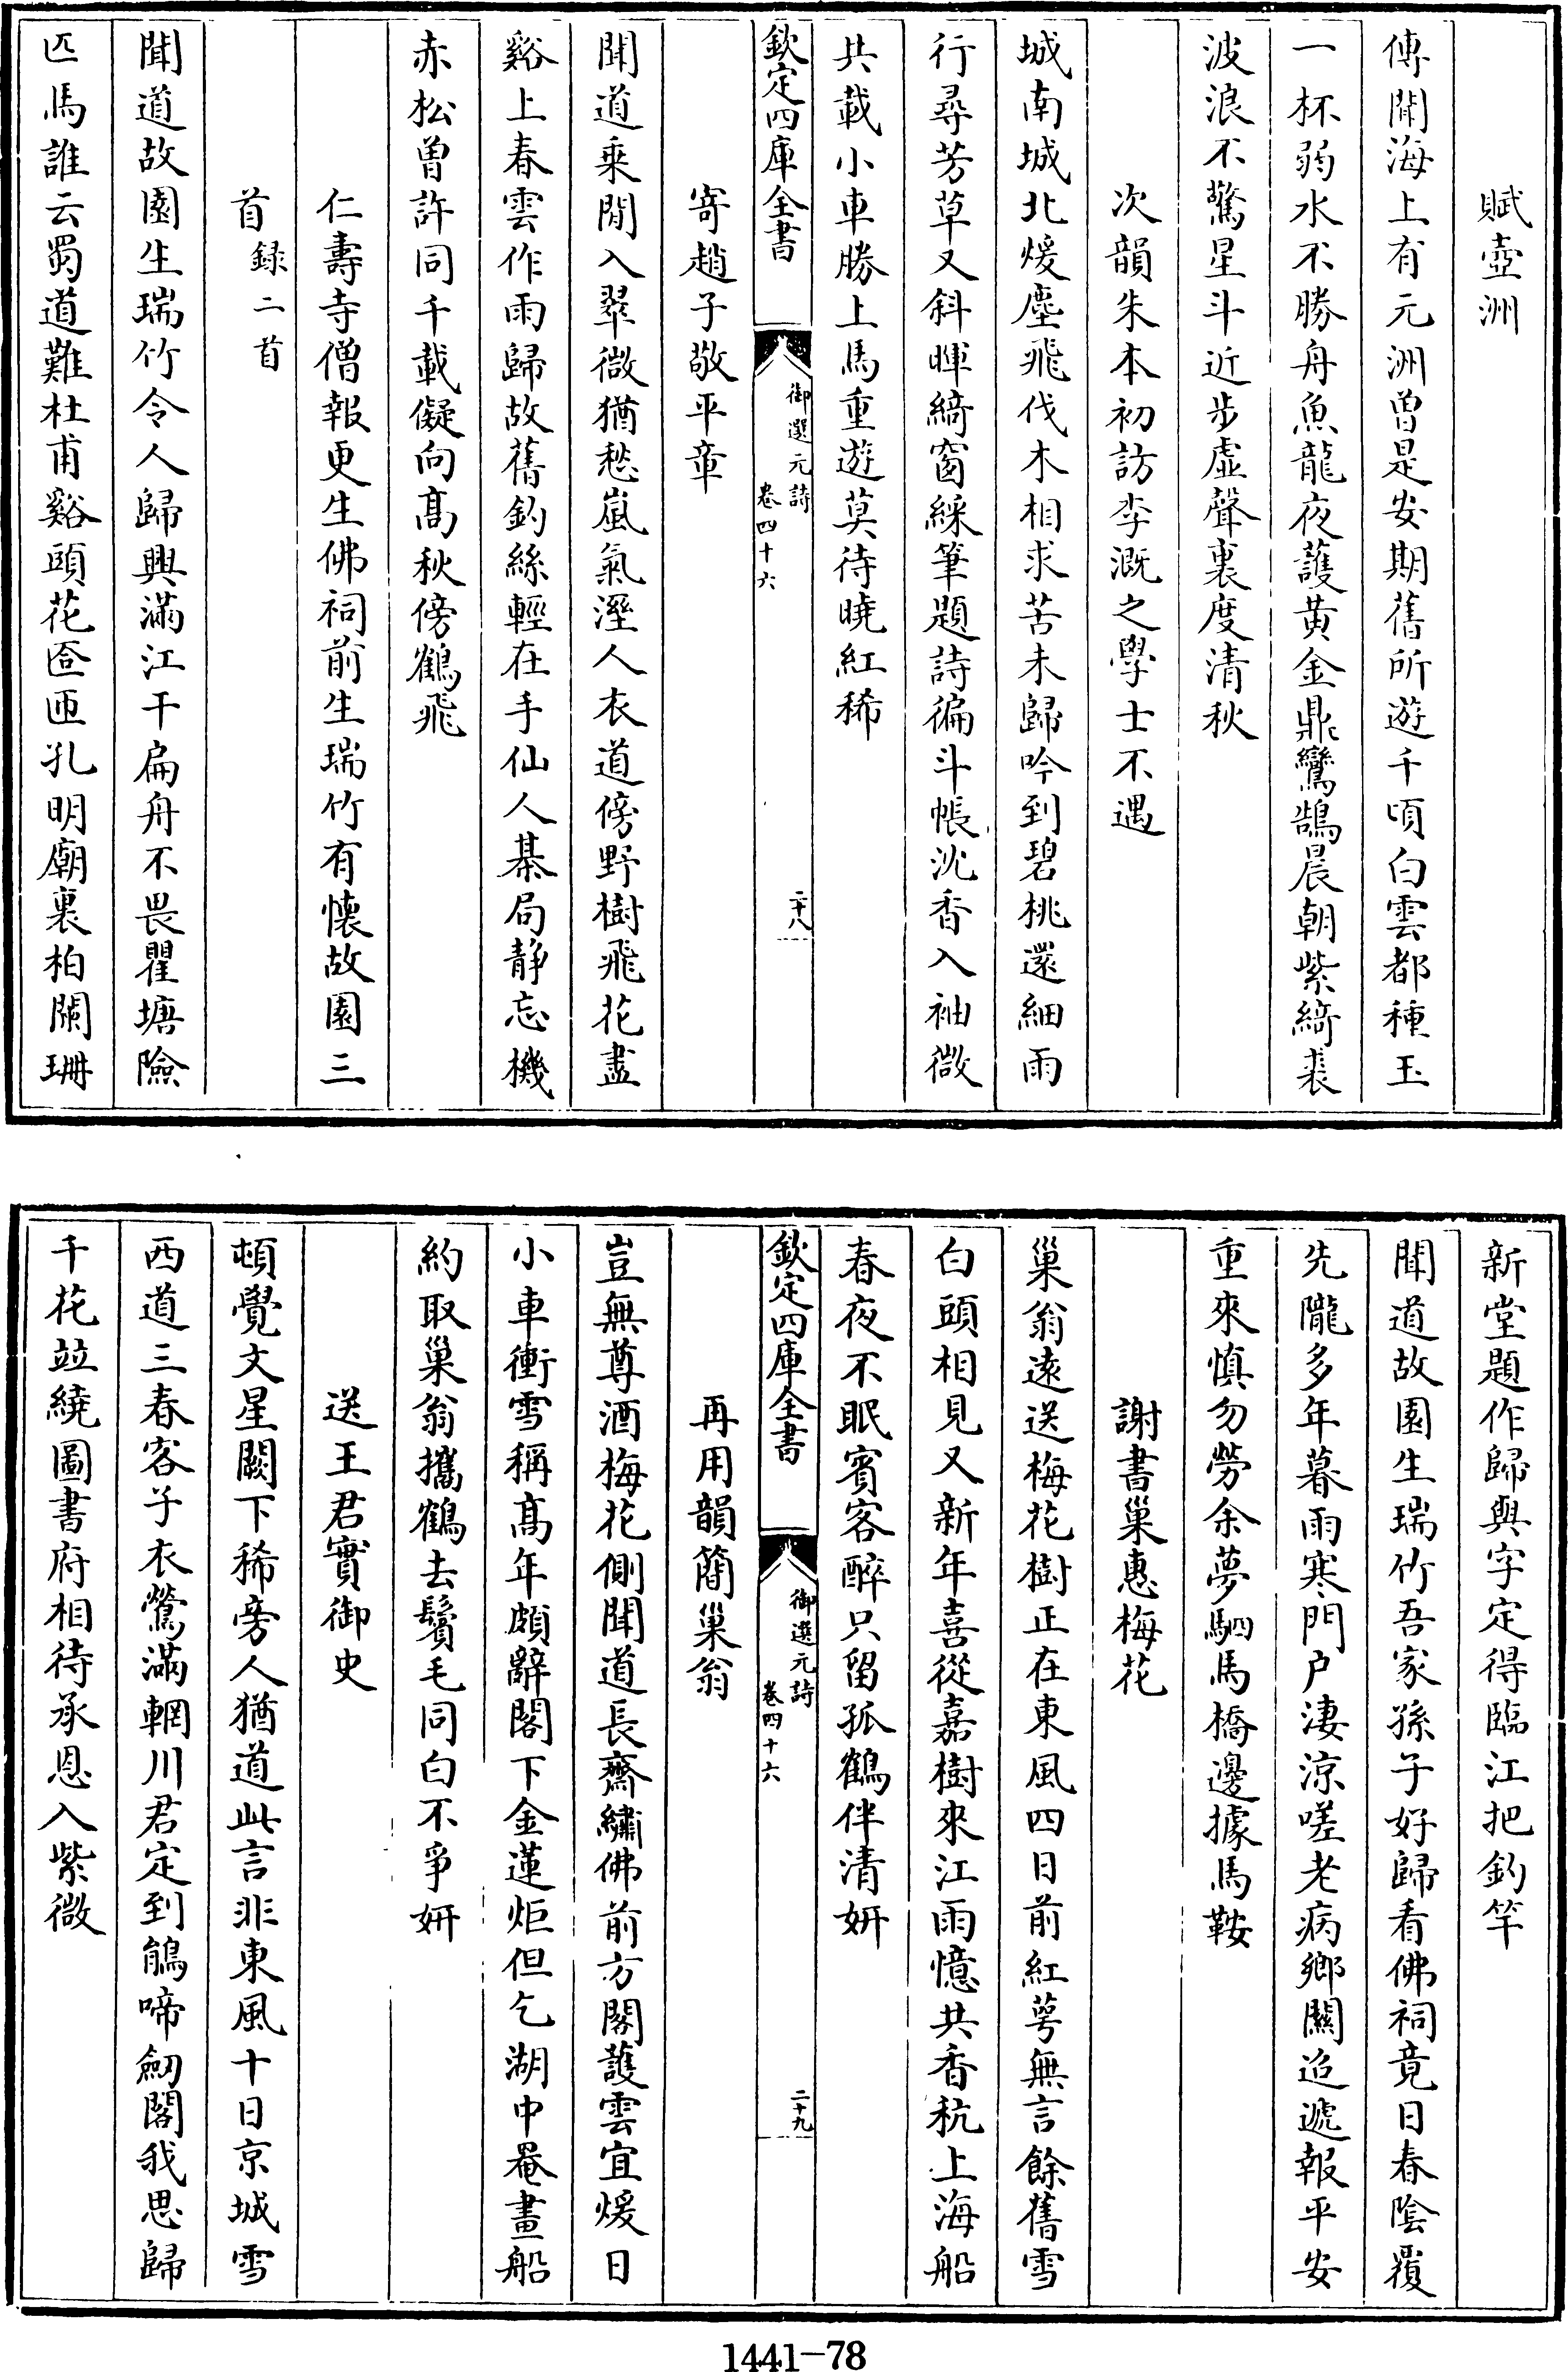 賦壺洲
傳聞海上有元洲曾是安期舊所遊千頃白雲都種玉
一杯弱水不勝舟魚龍夜護黄金鼎鸞鵠晨朝紫綺裘
波浪不驚星斗近步虚聲裏度清秋
次韻朱本初訪李溉之學士不遇
城南城北煖塵飛伐木相求苦未歸吟到碧桃還細雨
行尋芳草又斜暉綺窗綵筆題詩徧斗帳沈香入袖微
共載小車勝上馬重遊莫待曉紅稀
欽定四庫全書
御選元詩
卷四十六
二十八
寄趙子敬平章
聞道乘閒入翠微猶愁嵐氣溼人衣道傍野樹飛花盡
谿上春雲作雨歸故舊釣絲輕在手仙人棊局静忘機
赤松曾許同千載儗向髙秋傍鶴飛
仁壽寺僧報更生佛祠前生瑞竹有懐故園三
首録二首
聞道故園生瑞竹令人歸興滿江干扁舟不畏瞿塘險
匹馬誰云蜀道難杜甫谿頭花匼匝孔明廟裏柏闌珊
新堂題作歸與字定得臨江把釣竿
聞道故園生瑞竹吾家孫子好歸看佛祠竟日春陰覆
先隴多年暮雨寒門戸凄涼嗟老病鄉關迢遞報平安
重來慎勿勞余夢駟馬橋邊據馬鞍
謝書巢惠梅花
巢翁遠送梅花樹正在東風四日前紅萼無言餘舊雪
白頭相見又新年喜從嘉樹來江雨憶共香秔上海船
春夜不眠賓客醉只留孤鶴伴清妍
欽定四庫全書
御選元詩
卷四十六
二十九
再用韻簡巢翁
豈無尊酒梅花側聞道長齋繡佛前方閣護雲宜煖日
小車衝雪稱髙年頗辭閣下金蓮炬但乞湖中罨畫船
約取巢翁攜鶴去鬢毛同白不爭妍
送王君實御史
頓覺文星闕下稀旁人猶道此言非東風十日京城雪
西道三春客子衣鶯滿輞川君定到鵑啼劒閣我思歸
千花竝繞圖書府相待承恩入紫微
1441—78